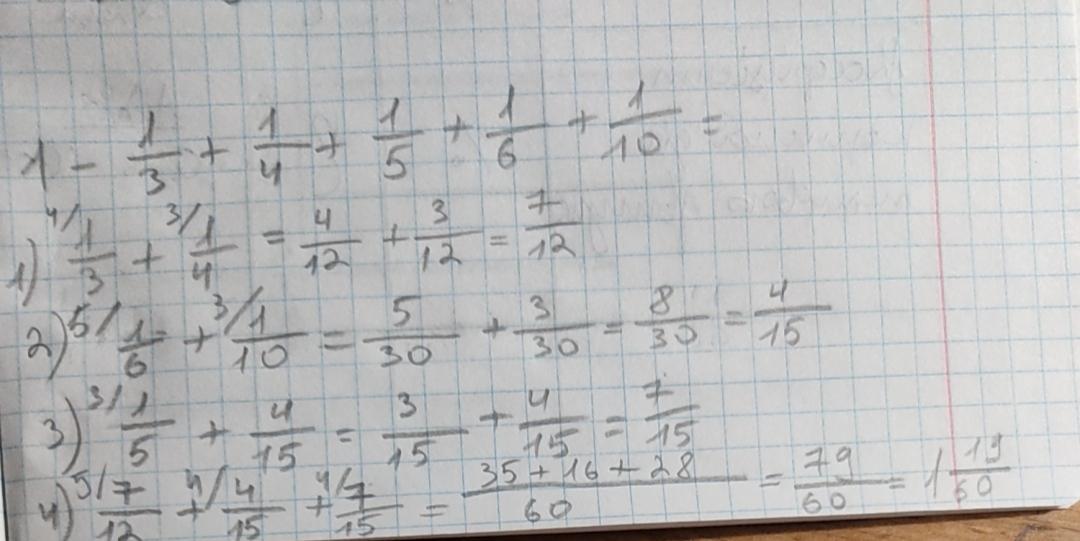 1 - 1/3 + 1/4 + 1/5 + 1/6 + 1/10 =
1) 4/ 1/3 + 3/ 1/4 = 4/12 + 3/12 = 7/12
2) 5/ 1/6 + 3/ 1/10 = 5/30 + 3/30 = 8/30 = 4/15
3) 3/ 1/5 + 4/15 = 3/15 + 4/15 = 7/15
4) 5/ 7/12 + 4/ 4/15 + 4/ 7/15 = 35+16+28/60 = 79/60 = 1 19/60